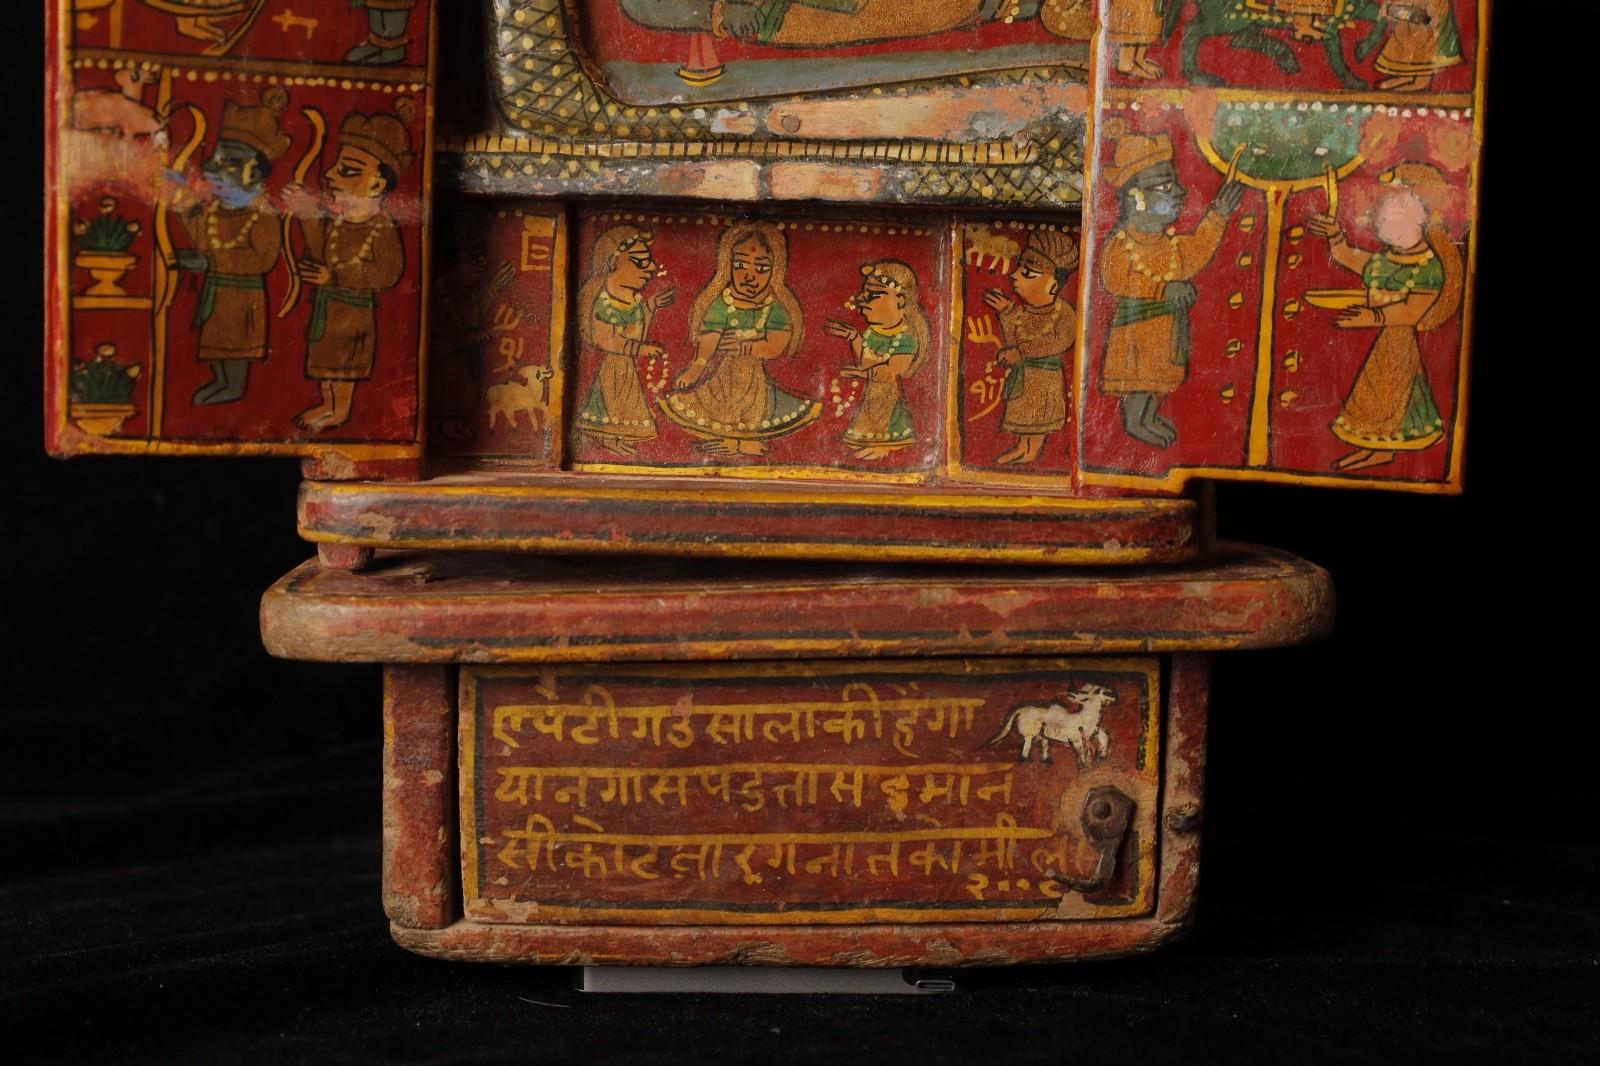 ए पेटी गउ साला की हे गा
या न गास पडता स इ मा न
सी को ट ता र ग ना त को मी ला
२००८